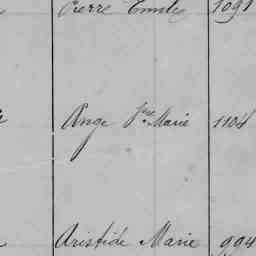 Pierre Emile 1091
Ange Fse Marie 1104
Aristide Marie 994